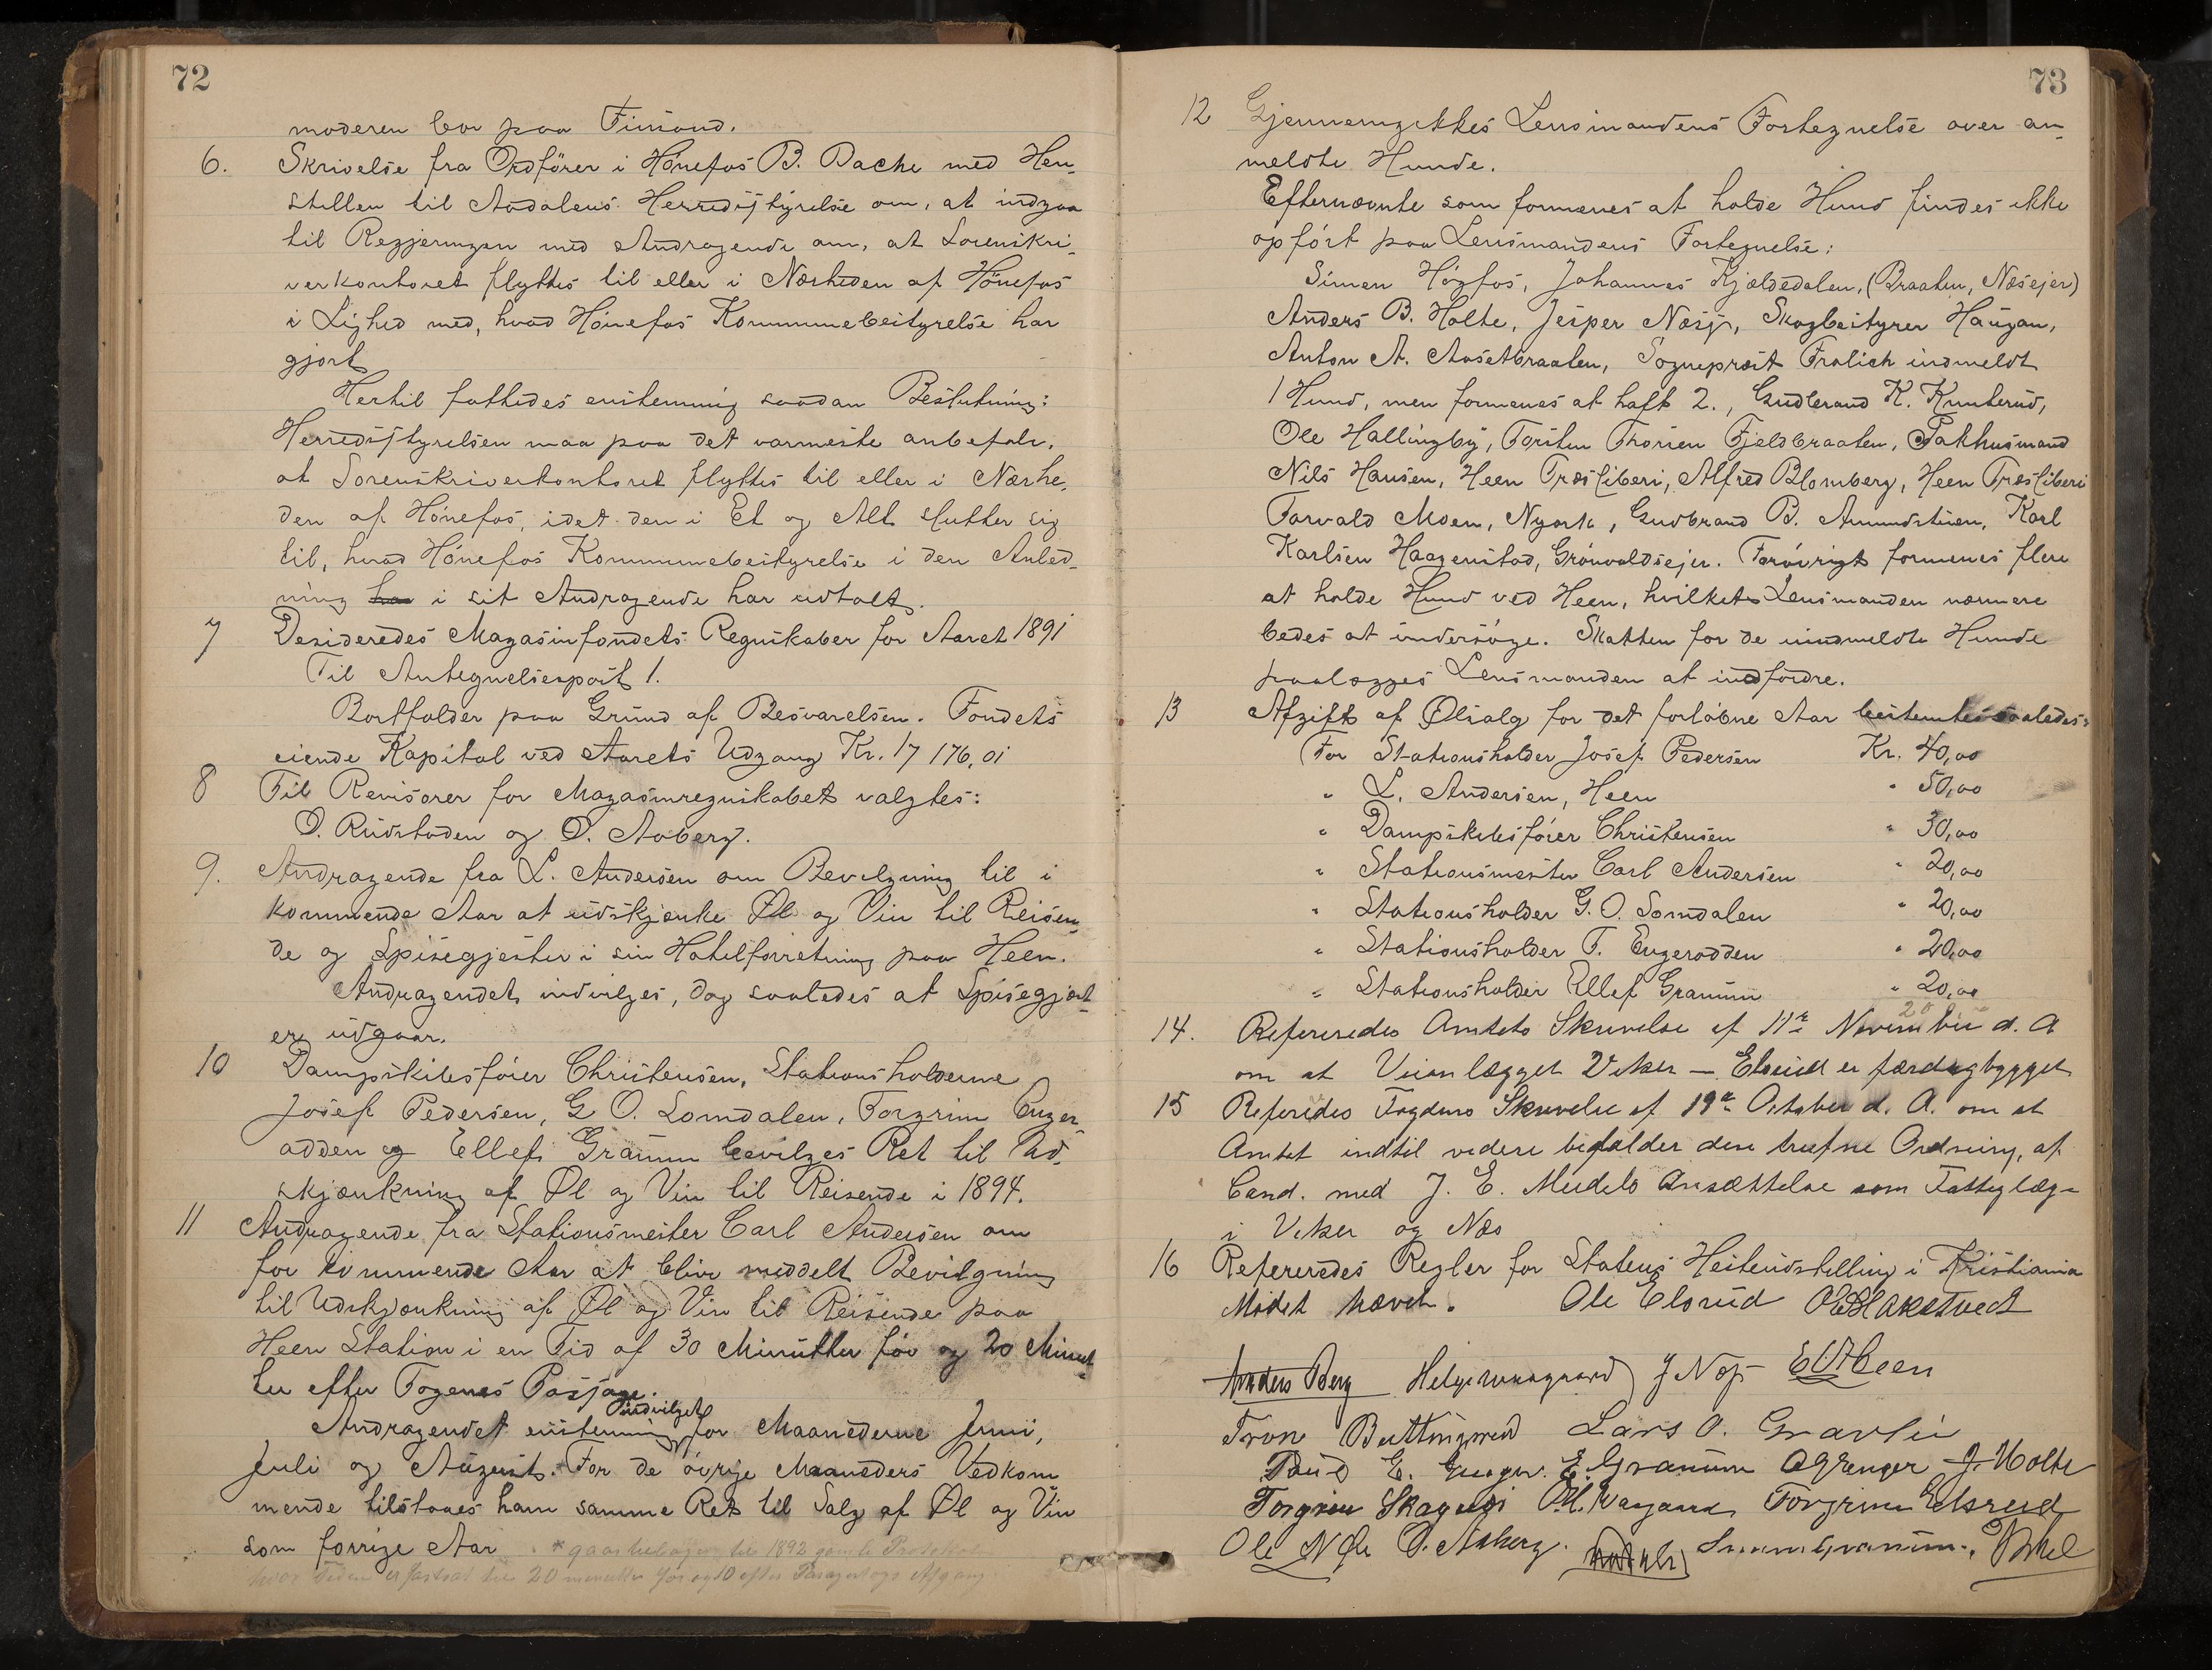 72
moderen bor paa Finsand.
6. Skrivelse fra Ordfører i Hønefos B. Bache med Hen-
stillen til Aadalens Herredsstyrelse om, at indgaa
til Regjeringen med Andragende om, at Sorenskri-
verkontoret flyttes til eller i Nærheden af Hønefos
i Lighed med, hvad Hønefos Kommunebestyrelse har
gjort
Hertil fattedes enstemmig saadan Beslutning:
Herredsstyrelsen maa paa det varmeste anbefale,
at Sorenskriverkontoret flyttes til eller i Nærhe-
den af Hønefos, idet den i Et og Alt slutter sig
til, hvad Hønefos Kommunebestyrelse i den Anled-
ning har i sit Andragende har udtalt.
7 Desideredes Magasinfondets Regnskaber for Aaret 1891
Til Antegnelsespost 1.
Bortfalder paa Grund af Besvarelsen. Fondets
eiende Kapital ved Aarets Udgang Kr. 17 176,01
8 Til Revisorer for Magasinregnskabet valgtes:
O. Rudstaden og O. Aaberg.
9. Andragende fra L. Andersen om Bevilgning til i
kommende Aar at udskjænke Øl og Vin til Reisen-
de og Spisegjester i sin Hotelforretning paa Heen.
Andragendet indvilges, dog saaledes at Spisegjest-
er udgaar.
10 Dampskibsfører Christensen, Stationsholderne
Josef Pedersen, G. O. Somdalen, Torgrim Enger-
odden og Ellef Granum bevilges Ret til Ud-
skjænkning af Øl og Vin til Reisende i 1894.
11 Andragende fra Stationsmester Carl Andersen om
for kommende Aar at blive meddelt Bevilgning
til Udskjænkning af Øl og Vin til Reisende paa
Heen Station i en Tid af 30 Minutter før og 20 Minut-
ter efter Togenes Passage.
indvilget
Andragendet enstemmig for Maanederne Juni,
Juli og August. For de øvrige Maaneders Vedkom
mende tilstaaes ham samme Ret til Salg af Øl og Vin
som forrige Aar * til 1892 gamle Protokol
hvor Tiden er fastsat til 20 minutter før og 10 efter Afgang.
73
12 Gjennemgikkes Lensmandens Fortegnelse over an-
meldte Hunde.
Efternævnte som formenes at holde Hund findes ikke
opført paa Lensmandens Fortegnelse:
Simen Høgfos, Johannes Kjældedalen, (Braaten, Næsejer)
Anders B. Holte, Jesper Næsje, Skogbestyrer Haugan,
Anton A. Aasetbraaten, Sogneprest Frølich indmeldt
1 Hund, men formenes at haft 2., Gudbrand K. Knuterud,
Ole Hallingby, Torsten Thorsen Fjeldbraaten, Pakhusmand
Nils Hansen, Heen Træsliberi, Alfred Blomberg, Heen Træsliberi
Torvald Moen, Nyork, Gudbrand B. Amundstuen, Karl
Karlsen Haagenstad, Grønvoldsejer. Forøvrigt formenes flere
at holde Hund ved Heen, hvilket Lensmanden nærmere
bedes at undersøge. Skatten for de uindmeldte Hunde
paalægges Lensmanden at indfordre.
13 Afgift af Ølsalg for det forløbne Aar bestemtes saaledes:
For Stationsholder Josef Pedersen Kr. 40,00
" L. Andersen, Heen " 50,00
" Dampskibsfører Christensen " 30,00
" Stationsmester Carl Andersen " 20,00
" Stationsholder G. O. Somdalen " 20,00
" Stationsholder T. Engerodden " 20,00
" Stationsholder Ellef Granum " 20,00
20
14. Refereredes Amtets Skrivelse af 11te November d. A
om at Veianlægget Viker — Elsrud er færdigbygget
15 Referedes Fogdens Skrivelse af 19de October d. A. om at
Amtet indtil videre bifalder den trufne Ordning, af
Cand. med J. E. Ansættelse som Fattiglæge
i Viker og Næs
16 Refereredes Regler for Statens Hesteudstilling i Kristiania
Mødet hævet. Ole Elsrud
Anders Berg Helge J Næsje
Tron Buttingsrud Lars O. Gravlie
E. E. Granum J. Holte
Torgrim Torgrim Elsrud
Ole N O. Aaberg.